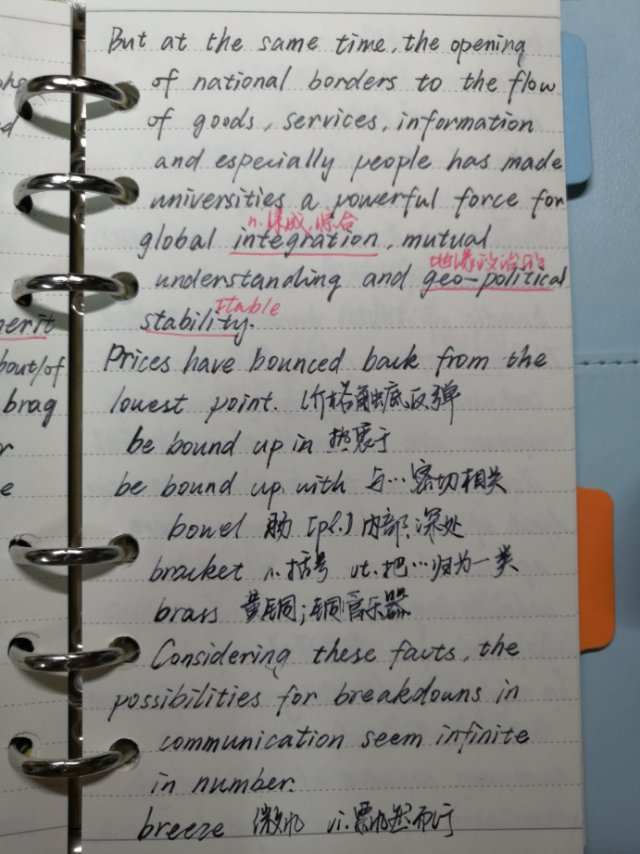 But at the same time, the opening
of national borders to the flow
of goods, services, information
and especially people has made
universities a powerful force for
n.集成,综合
global integration, mutual
地缘政治的
understanding and geo-political
stable
stability.
Prices have bounced back from the
lowest point. 价格触底反弹
be bound up in 热衷于
be bound up with 与…密切相关
bowel 肠 [pl.] 内部,深处
bracket n.括号 vt.把…归为一类
brass 黄铜;铜管乐器
Considering these facts, the
possibilities for breakdowns in
communication seem infinite
in number.
breeze 微风 vi.飘然而行
erit
bout/of
brag
r
e
d